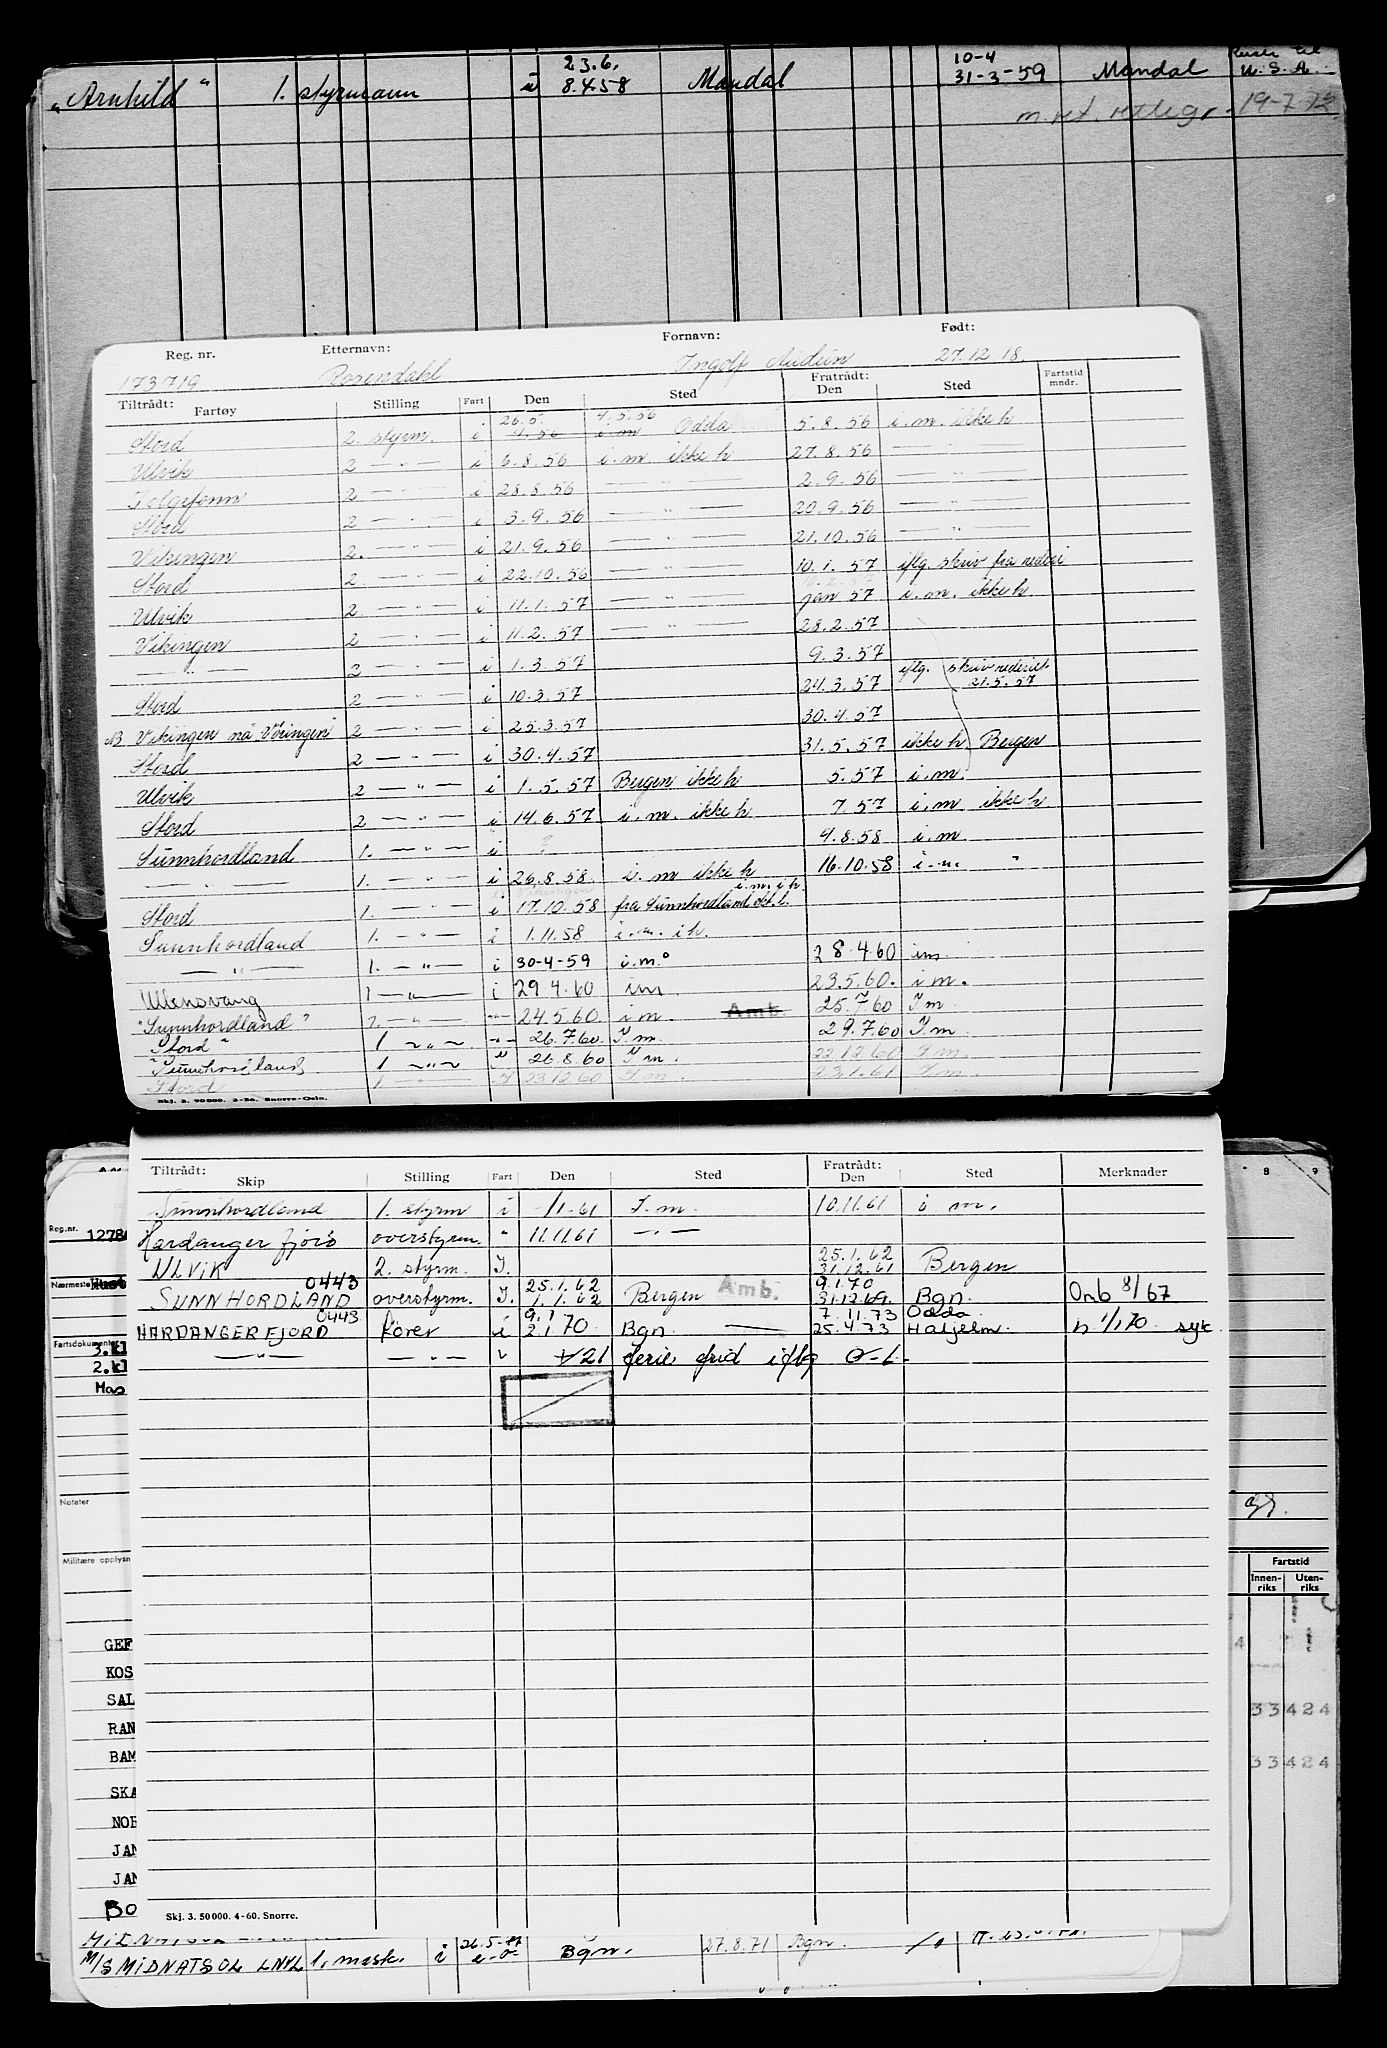 "Arnhild" 1. styrmann u 23.6. 8.4.58 Mandal 10-4 31-3-59 Mandal Reiste til U.S.A.
19-7-72
Reg. nr. Etternavn: Fornavn: Født:
173719 Rosendahl Ingolf Audun 27.12.18.
Tiltrådt: Fartøy Stilling Fart Den Sted Fratrådt: Den Sted Fartstid mndr.
Stord 2. styrm. i 26.5. 4.56 4.5.56 i.m Odda 5.8.56 i.m. ikke h
Ulvik 2 — " — i 6.8.56 i.m. ikke h 27.8.56 — " —
Folgefonn 2 — " — i 28.8.56 — " — 2.9.56 — " —
Stord 2 — " — i 3.9.56 — " — 20.9.56 — " —
Vikingen 2. — " — i 21.9.56 — " — 21.10.56 — " —
Stord 2. — " — i 22.10.56 — " — 10.1.57 iflg. skriv fra rederi
Ulvik 2 — " — i 11.1.57 — " — jan 57 i.m. ikke h
Vikingen 2 — " — i 11.2.57 — " — 28.2.57
— " — 2 — " — i 1.3.57 9.3.57
Stord 2 — " — i 10.3.57 24.3.57 iflg. skriv rederiet 21.5.57
Vikingen nå "Vøringen" 2 — " — i 25.3.57 30.4.57
Stord 2 — " — i 30.4.57 31.5.57 ikke h Bergen
Ulvik 2 — " — i 1.5.57 Bergen ikke h 5.57 i.m.
Stord 2 — " — i 14.6.57 i.m. ikke h 7.57 i.m ikke h
Sunnhordland 1. — " — i ? 4.8.58 i.m.
— " — 1. — " — i 26.8.58. i.m ikke h 16.10.58 i.m. "
Stord 1. — " — i 17.10.58 fra Sunnhordland i.m. i h
Sunnhordland 1. — " — i 1.11.58 i.m. i h.
— " — 1. — " — i 30-4-59 i.m. 28.4.60 im
Ullensvang 1 — " — i 29.4.60 im 23.5.60. i m.
"Sunnhordland" 1. — " — 24.5.60 i m. Amb. 25.7.60 I m
Stord " 1 — " — 26.7.60. I m. 29.7.60 I m
"Sunnhordland 1 — " — 26.8.60 I m. 22.12.60 I m.
Stord 1 — " — I 23.12.60 I m. 23.1.61 I m.
Skj. 3. 90000. 3-56. Snorre-Oslo.
Tiltrådt: Skip Stilling Fart Den Sted Fratrådt: Den Sted Merknader
Sunnhordland 1. styrm i 1.61 I.m. 10.11.61 i m.
Hardanger fjord overstyrm. " 11.11.61 — " —
ULVIK 2. styrm. I. 25.1.62 31.12.61 Bergen
SUNNHORDLAND 0443 overstyrm. I. 25.1.62 1.1.62 Bergen Amb. 9.1.70 31.12.69. Bgn. Omb 8/67
HARDANGERFJORD 0443 fører i 9.1 2.1 70 Bgn. — 7.11.73 25.4.73 Odda Haljelm. n 1/1 70 syk
— " — — " — 21 ferie frid iflg
Skj. 3. 50000. 4-60. Snorre.
Reg.nr.
1278
Nærmeste
Fartsdokumenter
3.kl
2.kl
Notater
Militære opplysn
GEF
KOS
SAL
RAN
BAM
SKA
NOR
JAN
JAN
BO
8 9
Fartstid
Innen- riks Uten- riks
4
33424
33424
M/S MIDNATSOL LNVL 1. mask. i 26.5. Bgn. 27.8.71 Bgn.